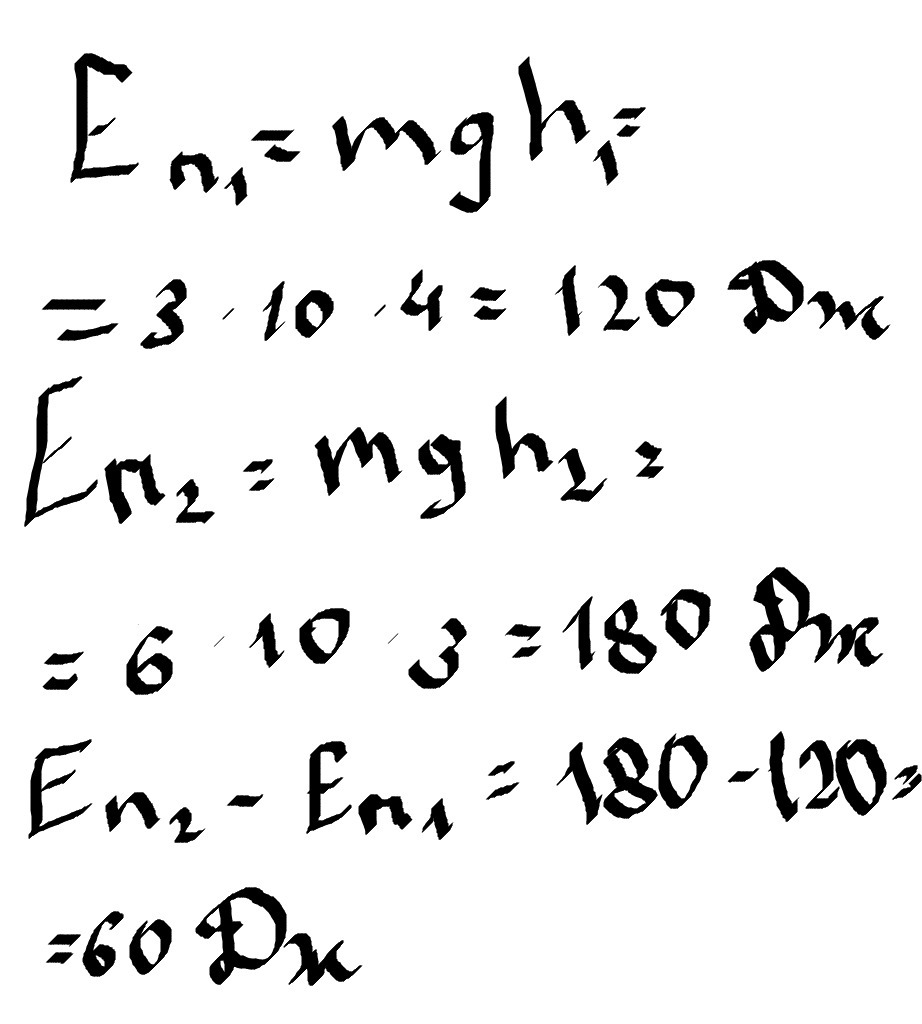 Eп₁ = mgh₁ =
= 3 · 10 · 4 = 120 Дж
Eп₂ = mgh₂ =
= 6 · 10 · 3 = 180 Дж
Eп₂ - Eп₁ = 180 - 120 =
= 60 Дж